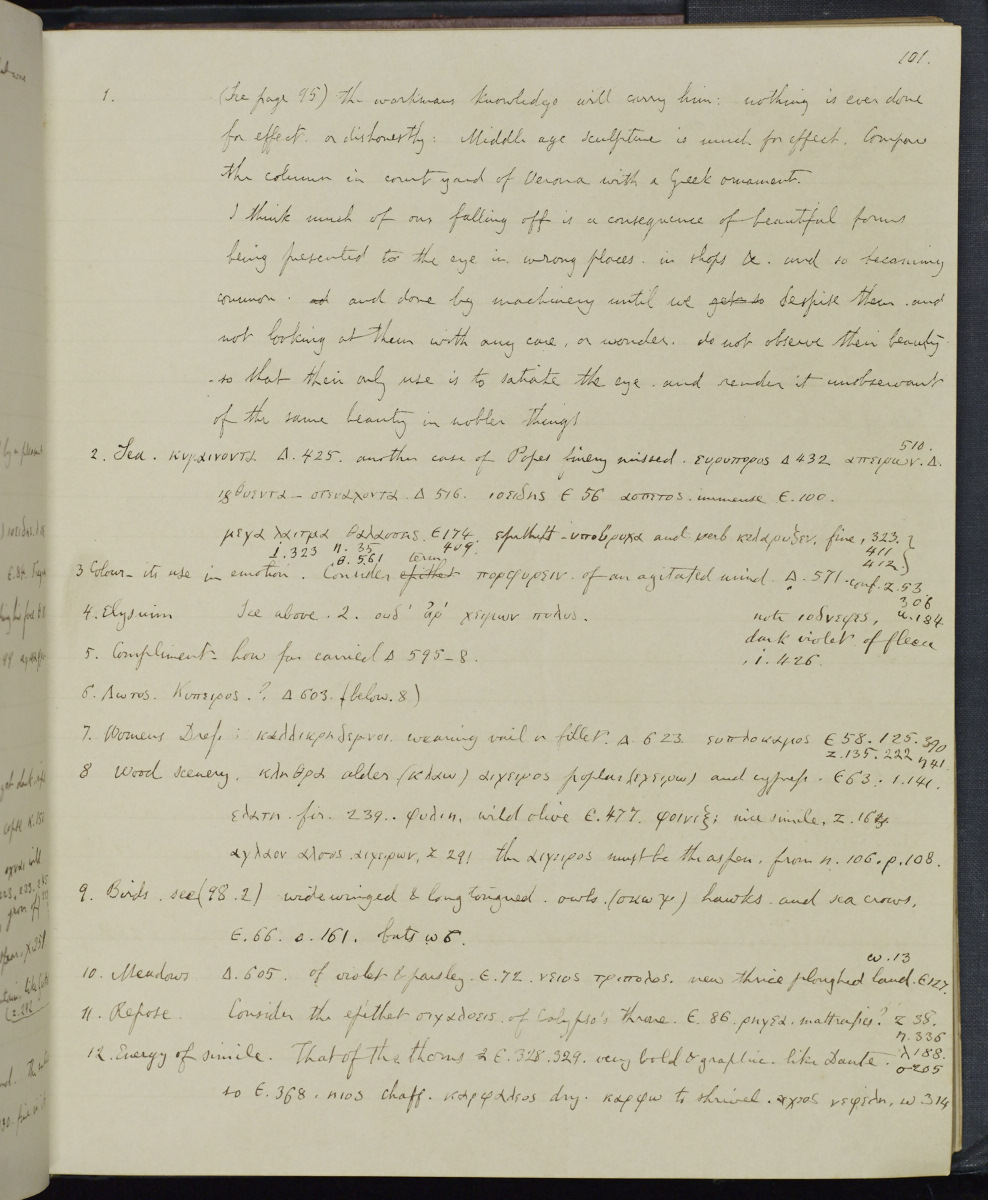 101.
1. (See page 95) the workmans knowledge will carry him: nothing is ever done
for effect. or dishonestly: Middle age sculpture is much for effect. Compare
the column in court yard of Verona with a Greek ornament.
I think much of our falling off is a consequence of beautiful forms
being presented to the eye in wrong places. in shops &c. and so becoming
common. and done by machinery until we get to despise them. and
not looking at them with any care, or wonder. do not observe their beauty.
- so that their only use is to satiate the eye. and render it unobservant
of the same beauty in nobler things
510.
2. Sea. κυμαινοντα Δ. 425. another case of Popes finery missed. ευρυπορος Δ 432 απειρων. Δ.
ιχθυεντα - στεναχοντα. Δ 516. ιοειδης Ε 56 ασπετος. immense Ε. 100.
μεγα λαιτμα θαλασσης. Ε 174. epithet - υποβρυχα and verb κελαρυζεν, fine, 323.
ι. 323 η. 35 θ. 561 409. 411 412.
3 Colour - its use in emotion. Consider epithet πορφυρειν. of an agitated mind. Δ. 571. conf. Ζ. 53
306
4. Elysium See above. 2. ουδ' αρ' χειμων πολυς. note ιοδνεφες, α. 184
dark violet of fleece
, ι. 426.
5. Compliment - how far carried Δ 595-8.
6. Λωτος. Κυπειρος. ? Δ 603. (below. 8)
7. Womens Dress: καλλικρηδεμνοι wearing vail or fillet. Δ. 623. ευπλοκαμος Ε 58. 125. 390
Ζ. 135. 222 η 41.
8 Wood scenery. κληθρα alder (κλαω) αιγειρος poplar (εγειρω) and cypress. Ε 63: ι. 141.
ελατη. fir. 239.. φυλιη, wild olive Ε. 477. φοινιξ; nice simile, Ζ. 162
αγλαον αλσος αιγειρων, Ζ 291 the αιγειρος must be the aspen. from η. 106. p. 108.
9. Birds. see (98. 2) wide winged & long tongued. owls. (σκωψ) hawks. and sea crows,
Ε. 66. ο. 161. bats ω 6.
ω. 13
10. Meadows Δ. 605. of violet & parsley. Ε. 72. νειος τριπολος. new thrice ploughed land. Ε 127.
11. Repose. Consider the epithet σιγαλοεις. of Calypso's throne. Ε. 86. ρηγεα. mattrasses? Ζ 38.
η. 336
λ 188.
12. Energy of simile. That of the thorns Ε. 328. 329. very bold & graphic. like Dante.
so Ε. 368. ηιος chaff. καρφαλεος dry. καρφω to shrivel. αχεος νεφελη, ω 314